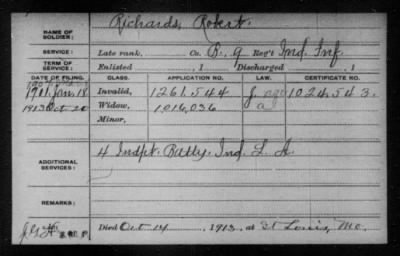 NAME OF SOLDIER: Richards, Robert.
SERVICE: Late rank, Co. B, 9 Reg't Ind. Inf.
TERM OF SERVICE: Enlisted , 1 Discharged , 1
DATE OF FILING. CLASS. APPLICATION NO. LAW. CERTIFICATE NO.
1901 Jan 18 Invalid, 1261.544 1024.543.
1913 Oct 20 Widow, 1,016,036
Minor,
ADDITIONAL SERVICES: 4 Indpt. Batty. Ind. L. A.
REMARKS:
Died Oct 14, 1913, at St Louis, Mo.